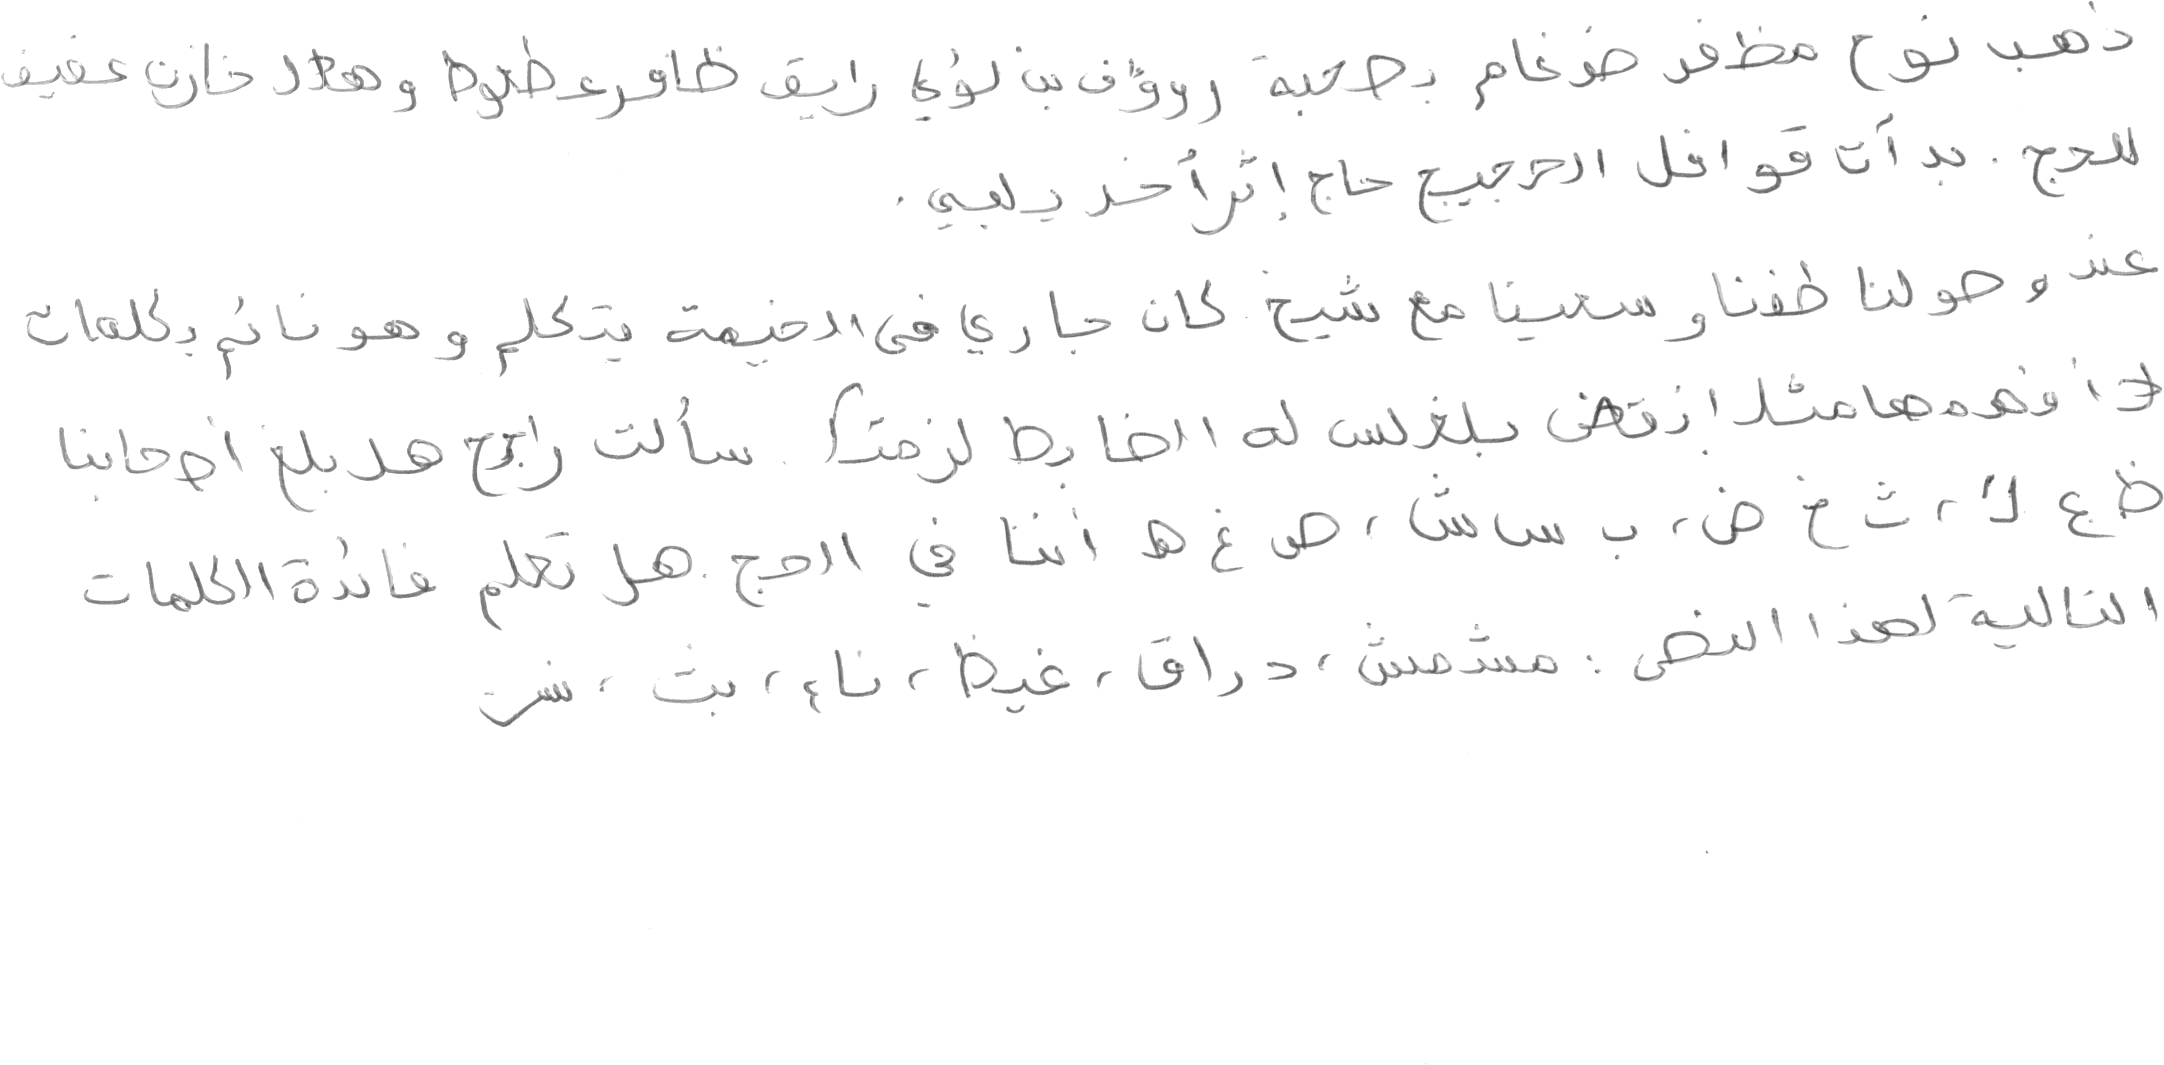 ذهب نوح مظفر ضرغام بصحبة رؤوف بن لؤي رايق ظافر عطعوط وهلال خازن عفيف
للحج . بدأت قوافل الحجيج حاج إثر أخذ يلبي .
عند وصولنا طفنا وسعينا مع شيخ . كان جاري في الخيمة يتكلم وهو نائم بكلمات
لا أفهمها مثلا زقض بلغ لس له الضابط لزمتك . سألت راجح هل بلغ أصحابنا
ظ ع لا ، ث خ ض ، ب س ا ش ، ص غ ه أننا في الحج . هل تعلم فائدة الكلمات
التالية لهذا النص : مشمش ، دراق ، غيظ ، ناء ، بث ، شر